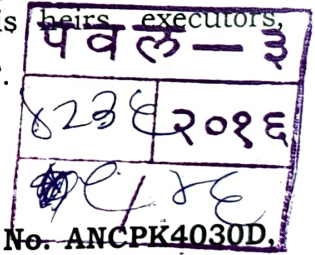 s heirs, executors,
पवल — ३
४२३६ २०१६
/ ४६
No. ANCPK4030D,